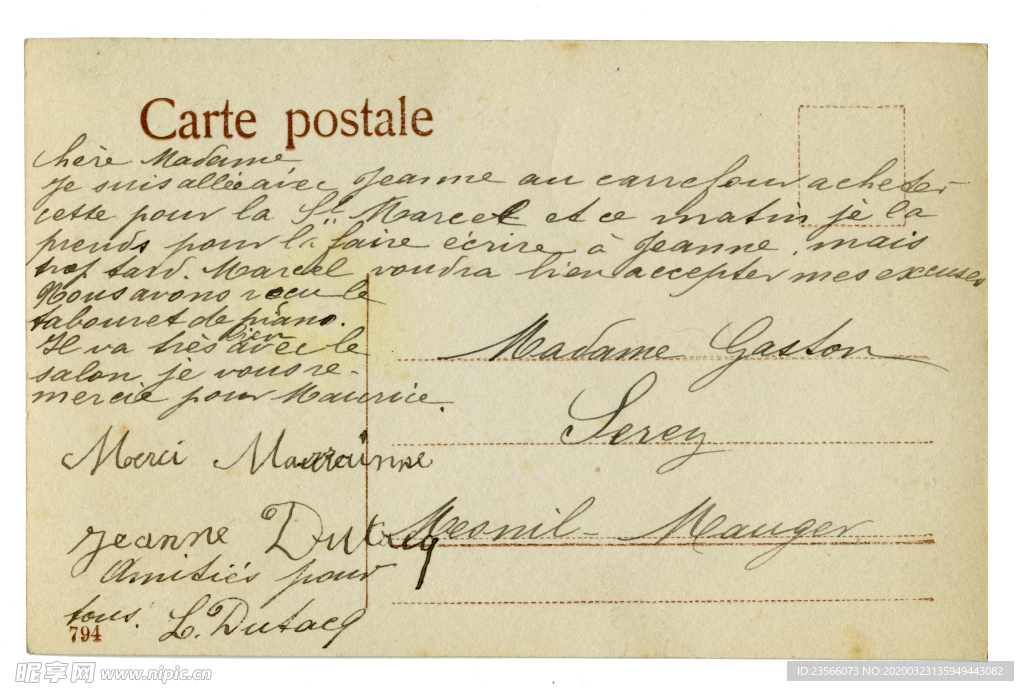 Carte postale
Chère Madame
Je suis allée avec Jeanne au carrefour acheter
cette pour la St Marcel et ce matin je la
prends pour la faire écrire à Jeanne, mais
trop tard. Marcel voudra bien accepter mes excuses
Nous avons reçu le
tabouret de piano.
Il va très bien avec le
salon, je vous re-
mercie pour Maurice.
Merci Marraine
Jeanne Dutacq
Amitiés pour
tous. L. Dutacq
794
Madame Gaston
Serey
Mesnil-Mauger
昵享网 www.nipic.cn
ID:23566073 NO:20200323135949443082